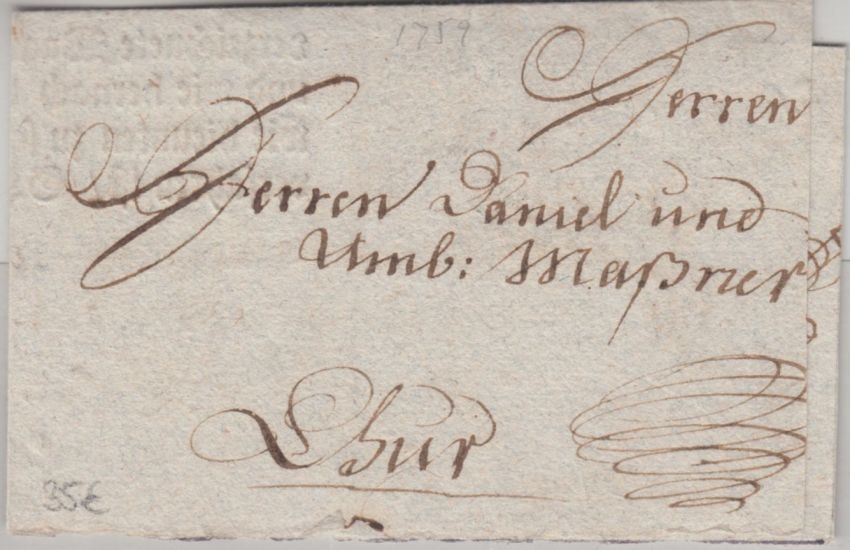 1759
Herren
Herren Daniel und
Amb: Maßner
Chur
35€